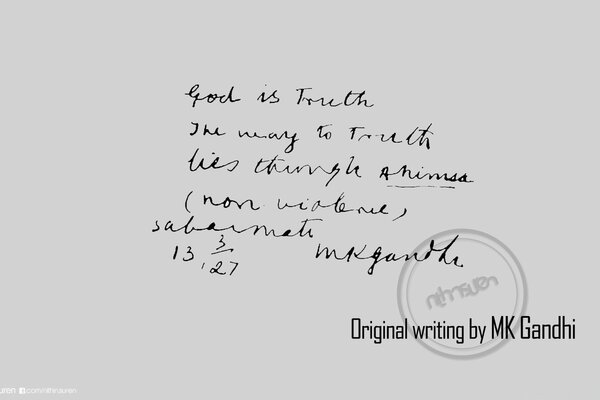 God is Truth
The way to Truth
lies through ahimsa
(non violence)
Sabarmati
13.3.27 MKGandhi
nithinsuren
Original writing by MK Gandhi
uren f.com/nithinsuren